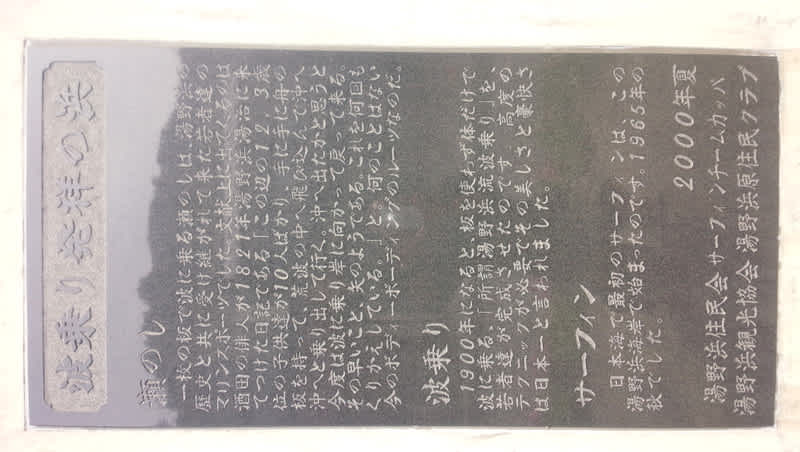 波乗り発祥の浜
瀬のし
一枚の板で波に乗る瀬のしは、湯野浜の
歴史と共に受け継がれて来た若者達の
マリンスポーツでした。文献上に出てくるのは
酒田の俳人が1821年湯野浜湯治に来
てつけた日記である「この辺の12、3歳
位の子供達が10人ばかり、手に手に舟の
板を持って、荒波の中へ飛び込んで沖へ
沖へと乗り出して行く。沖へ出たかと思うと
今度は波に乗り岩に向かって戻って来る。
その早いこと、矢のようである。これを何回も
くりかえしている。」と。何のことはない
今のボディーボーディングのルーツなのだ。
波乗り
1900年になると、板を使わず体だけで
波に乗る、「所謂湯野浜流波乗り」を、
若者達が完成させたのです。高度の
テクニックが必要でその美しさと豪快さ
は日本一と言われました。
サーフィン
日本海で最初のサーフィンは、この
湯野浜海岸で始まったのです。1965年の
秋でした。
2000年夏
湯野浜住民会 サーフィンチームカッパ
湯野浜観光協会 湯野浜原住民クラブ